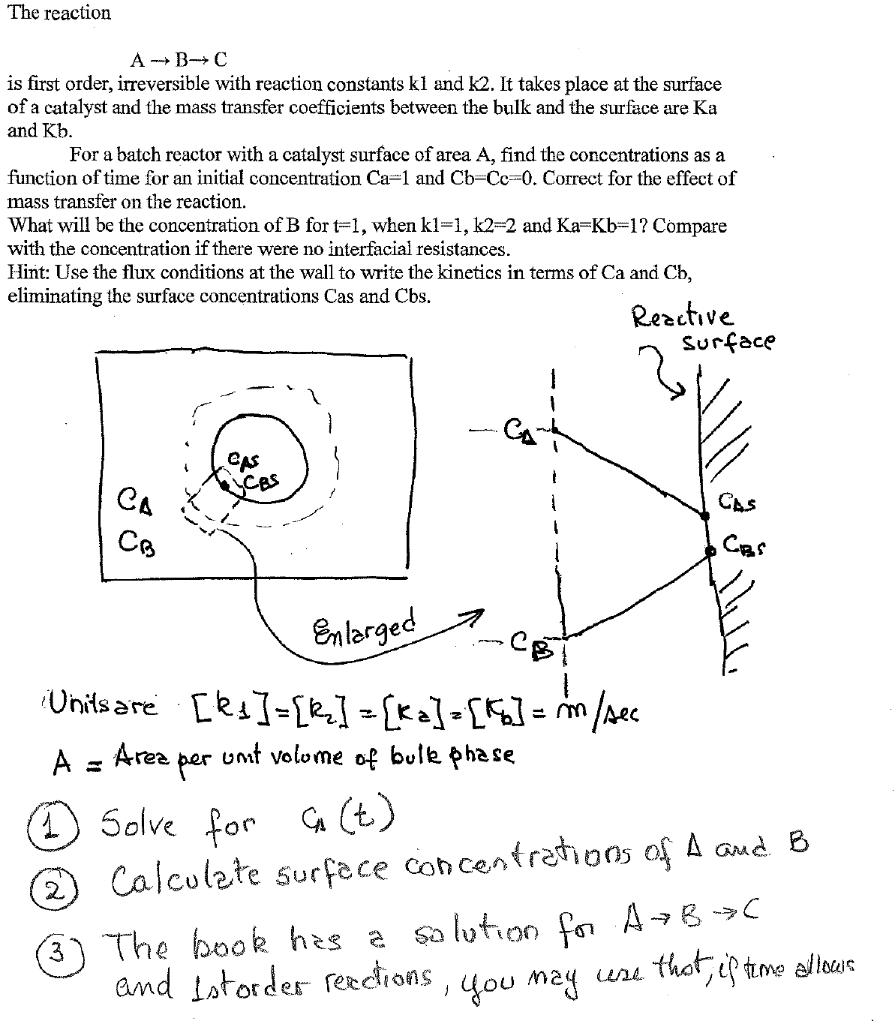 The reaction
A → B → C
is first order, irreversible with reaction constants k1 and k2. It takes place at the surface
of a catalyst and the mass transfer coefficients between the bulk and the surface are Ka
and Kb.
For a batch reactor with a catalyst surface of area A, find the concentrations as a
function of time for an initial concentration Ca=1 and Cb=Cc=0. Correct for the effect of
mass transfer on the reaction.
What will be the concentration of B for t=1, when k1=1, k2=2 and Ka=Kb=1? Compare
with the concentration if there were no interfacial resistances.
Hint: Use the flux conditions at the wall to write the kinetics in terms of Ca and Cb,
eliminating the surface concentrations Cas and Cbs.
Reactive
surface
CA
CAS
CBS
CA
CAS
CB
CBS
Enlarged
CB
Units are [k1]=[k2]=[Ka]=[Kb]= m/sec
A = Area per unit volume of bulk phase
① Solve for CA (t)
② Calculate surface concentrations of A and B
③ The book has a solution for A → B → C
and 1st order reactions, you may use that, if time allows